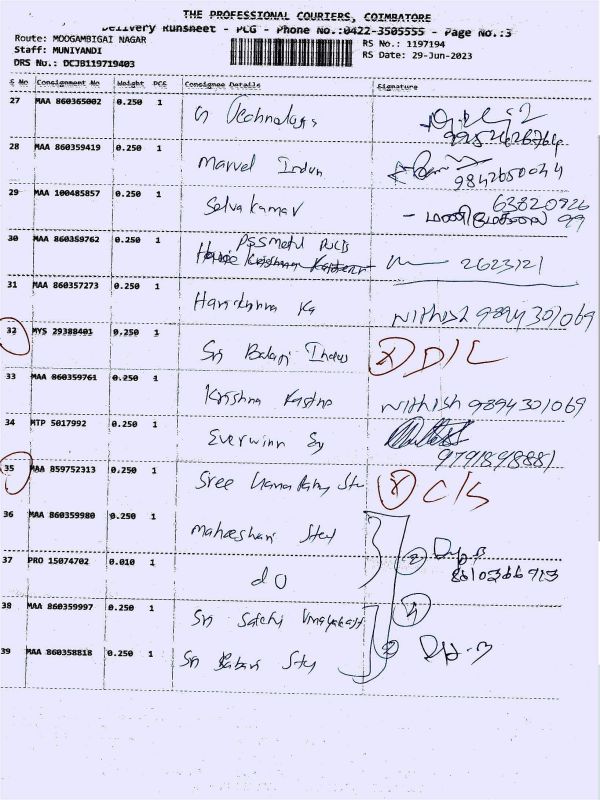 THE PROFESSIONAL COURIERS, COIMBATORE
Delivery Runsheet - PCG - Phone No.:0422-3505555 - Page No.:3
Route: MOOGAMBIGAI NAGAR
RS No.: 1197194
Staff: MUNIYANDI
RS Date: 29-Jun-2023
DRS No.: DCIJB119719403
S No Consignment No Weight PCS Consignee Details Signature
27 MAA 860365002 0.250 1 G Technologis
9952626764
28 MAA 860359419 0.250 1 Marvel Indun
9842650044
29 MAA 100485857 0.250 1 Selva kumar
63820926
99
30 MAA 860359762 0.250 1 PSS Metal
2623121
31 MAA 860357273 0.250 1 Harikrishna Ka Nithish 9894301069
32 MYS 29388401 0.250 1 Sri Balaji Indus D/L
33 MAA 860359761 0.250 1 Krishna Nithish 9894301069
34 MTP 5017992 0.250 1 Everwinn
9791898881
35 MAA 859752313 0.250 1 Sree Stee C/S
36 MAA 860359980 0.250 1 Maheshwari Steel
37 PRO 15074702 0.010 1 do
8610366913
38 MAA 860359997 0.250 1 Sri Sakthi Vinayaka
39 MAA 860358818 0.250 1 Sri Steel